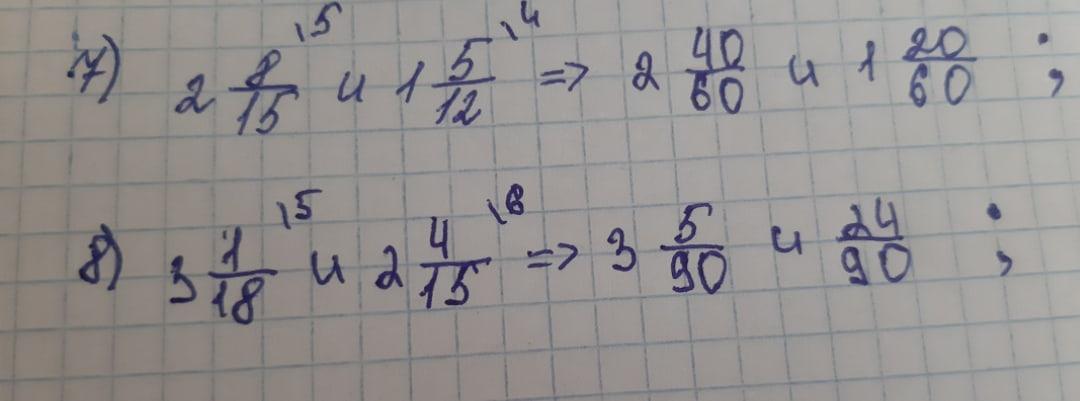 7) 2 8/15 \5 и 1 5/12 \4 => 2 40/60 и 1 20/60 ;
8) 3 1/18 \5 и 2 4/15 \6 => 3 5/90 и 24/90 ;